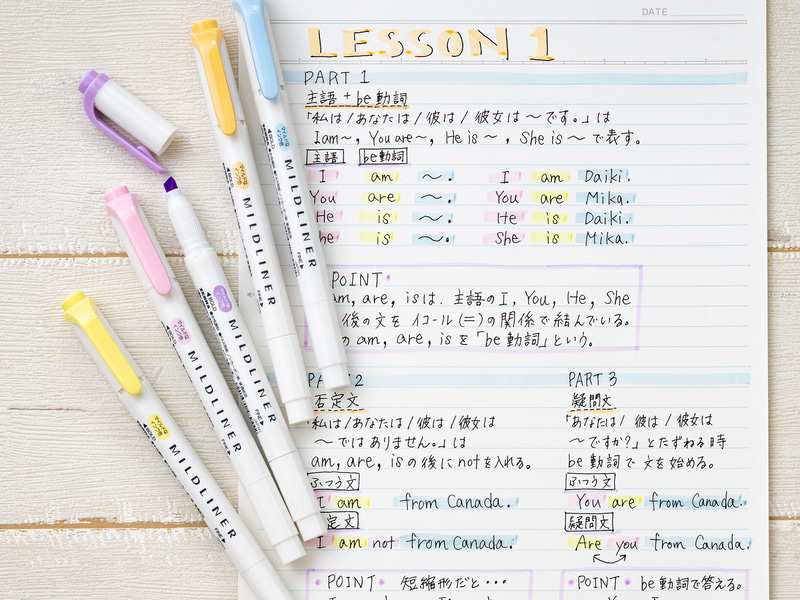 DATE
LESSON 1
PART 1
主語 + be動詞
「私は/あなたは/彼は/彼女は〜です。」は
I am〜, You are〜, He is〜, She is〜で表す。
主語 be動詞
I am 〜. I am Daiki.
You are 〜. You are Mika.
He is 〜. He is Daiki.
he is 〜. She is Mika.
POINT
am, are, isは、主語のI, You, He, She
後の文をイコール(=)の関係で結んでいる。
の am, are, isを「be動詞」という。
PART 2
否定文
「私は/あなたは/彼は/彼女は
〜ではありません。」は
am, are, isの後にnotを入れる。
ふつう文
I am from Canada.
定文
I am not from Canada.
POINT 短縮形だと・・・
PART 3
疑問文
「あなたは/彼は/彼女は
〜ですか?」とたずねる時
be動詞で文を始める。
ふつう文
You are from Canada.
疑問文
Are you from Canada.
POINT be動詞で答える。
MILDLINER
MILDLINER
MILDLINER
MILDLINER
MILDLINER